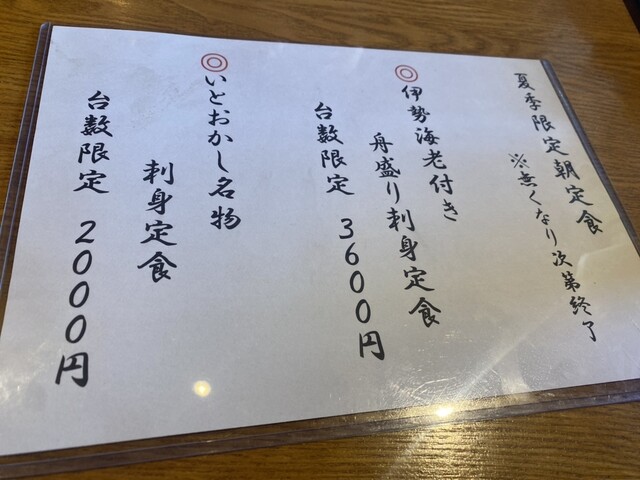 夏季限定朝定食
※無くなり次第終了
◎伊勢海老付き
舟盛り刺身定食
台数限定 3600円
◎いとおかし名物
刺身定食
台数限定 2000円